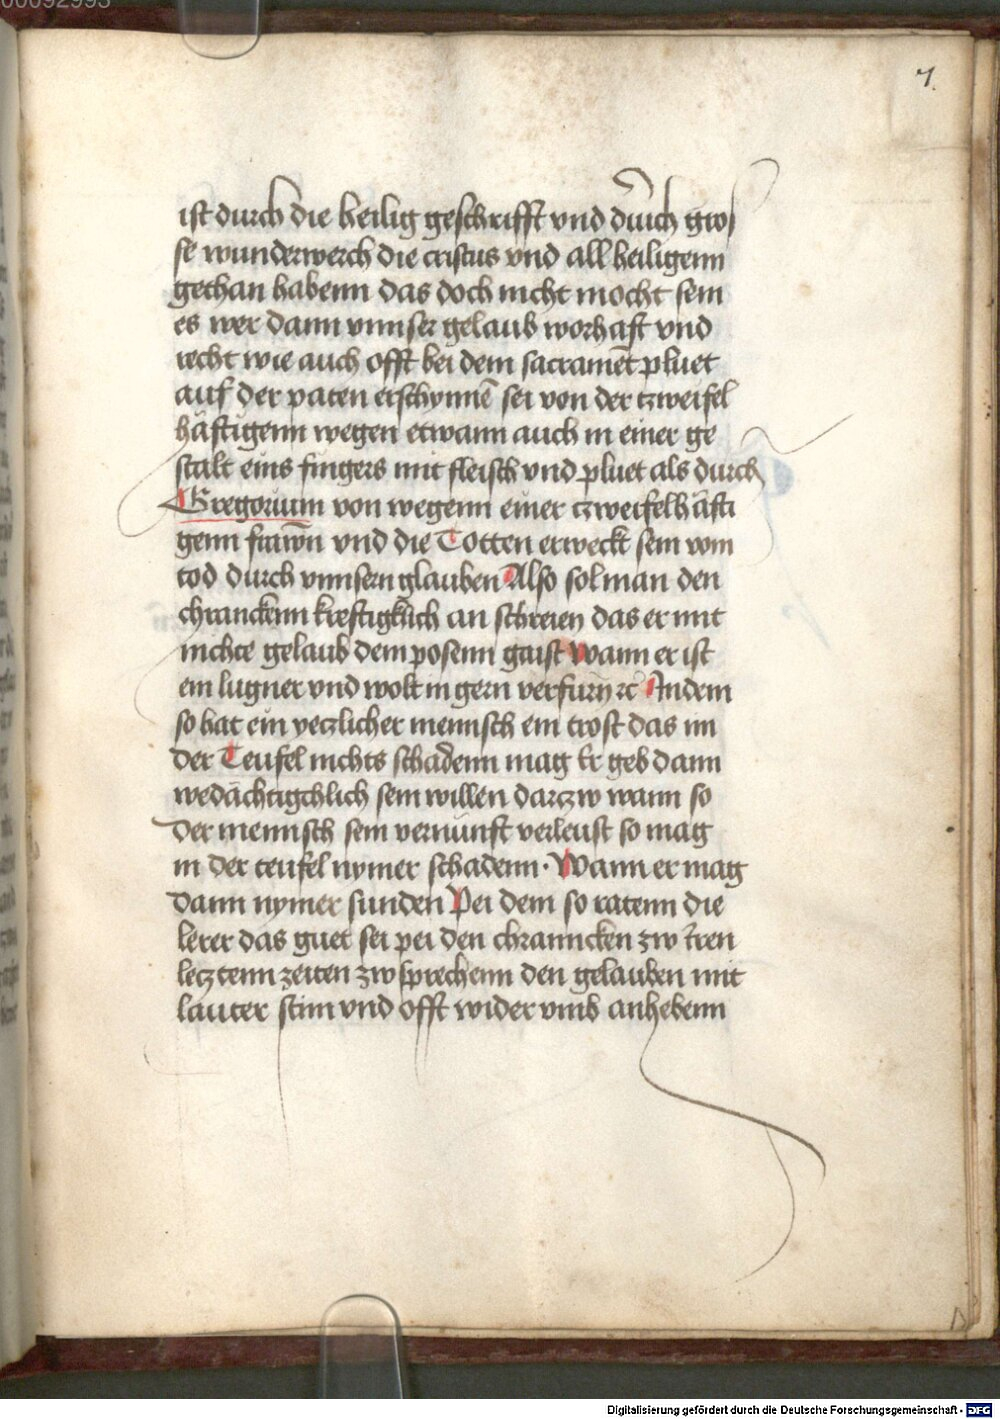 00092993
7.
ist durch die heilig geschrifft vnd durch gros
se wunderwerch die cristus vnd all heiligenn
gethan habenn das doch nicht mocht sein
es wer dann vnnser gelaub worhaft vnd
recht wie auch offt bei dem sacramēt pluet
auf der paten erschynnē sei von der tzweifel
häftigenn wegen etwann auch in einer ge
stalt eins fingers mit fleisch vnd pluet als durch
Gregorium von wegenn einer tzweifelhäfti
genn frawn vnd die Totten erweckt sein vom
tod durch vnnsern glauben Also sol man den
chranckenn kreftigklich an schreien das er mit
nichte gelaub dem posenn gaist Wann er ist
ein lugner vnd wolt in gern verfurn rc Indem
so hat ein yetzlicher mennsch ein trost das im
der Teufel nichts schadenn mag Er geb dann
wedächtigchlich sein willen darczw wann so
der mennsch sein vernunft verleust so mag
in der teufel nymer schadenn · Wann er mag
dann nymer sunden Pei dem so ratenn die
lerer das guet sei pei den chranncken zw iren
letztenn zeiten zw sprechenn den gelauben mit
lauter stim vnd offt wider vmb anhebenn
Digitalisierung gefördert durch die Deutsche Forschungsgemeinschaft - DFG